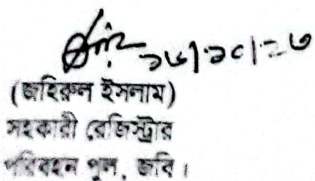 ২৬।১০।২৩
(জহিরুল ইসলাম)
সহকারী রেজিস্ট্রার
পরিবহন পুল, জবি।